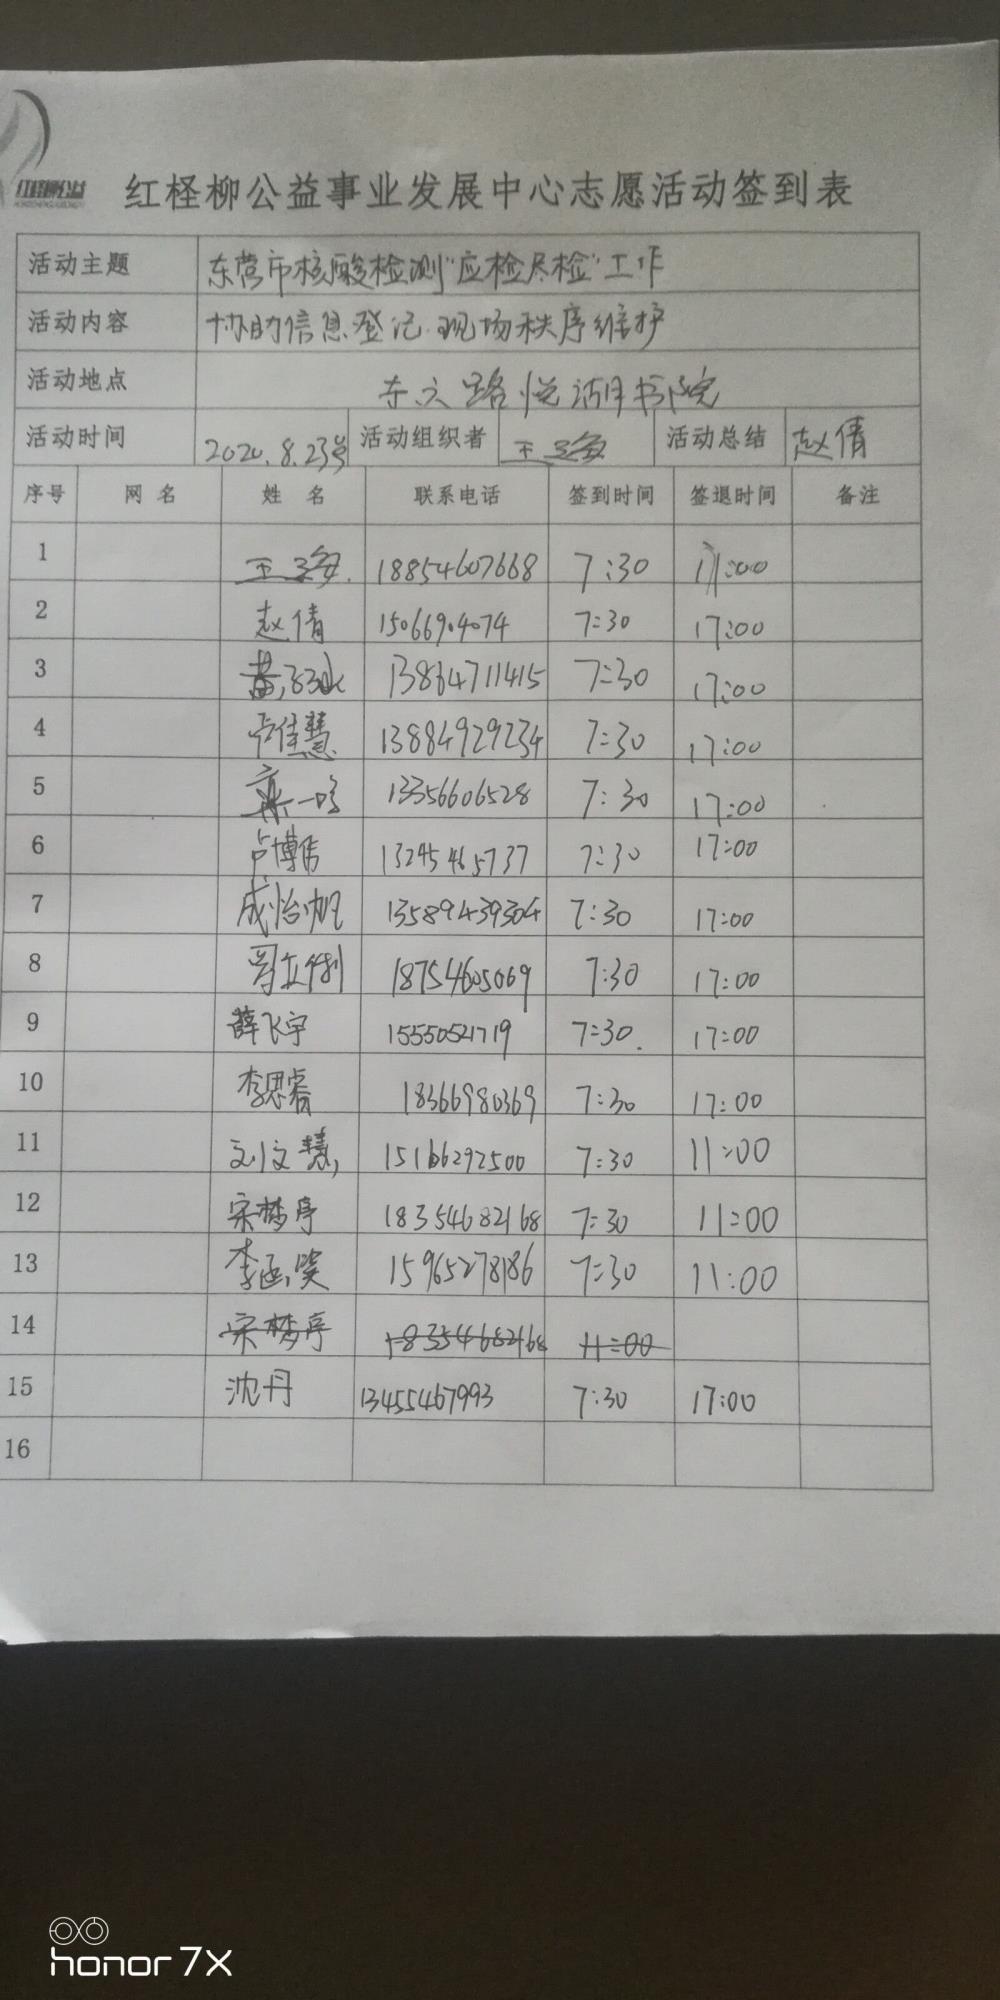 红柽柳公益
红柽柳公益事业发展中心志愿活动签到表
活动主题 东营市核酸检测"应检尽检"工作
活动内容 协助信息登记.现场秩序维护
活动地点 东六路悦湖书院
活动时间 2020.8.23号 活动组织者 王 活动总结 赵倩
序号 网名 姓名 联系电话 签到时间 签退时间 备注
1 王 18854607668 7:30 11:00
2 赵倩 15066904074 7:30 17:00
3 黄 13864711415 7:30 17:00
4 佳慧 13884929234 7:30 17:00
5 一 13356606528 7:30 17:00
6 卢博伟 13245465737 7:30 17:00
7 成怡帆 13589439304 7:30 17:00
8 18754605069 7:30 17:00
9 薛飞宇 15550521719 7:30. 17:00
10 李思睿 18366980369 7:30 17:00
11 刘文慧 15166292500 7:30 11:00
12 宋梦亭 18354682168 7:30 11:00
13 李函笑 15965278186 7:30 11:00
14 宋梦亭 18354682168 11:00
15 沈丹 13455467993 7:30 17:00
16
honor 7X